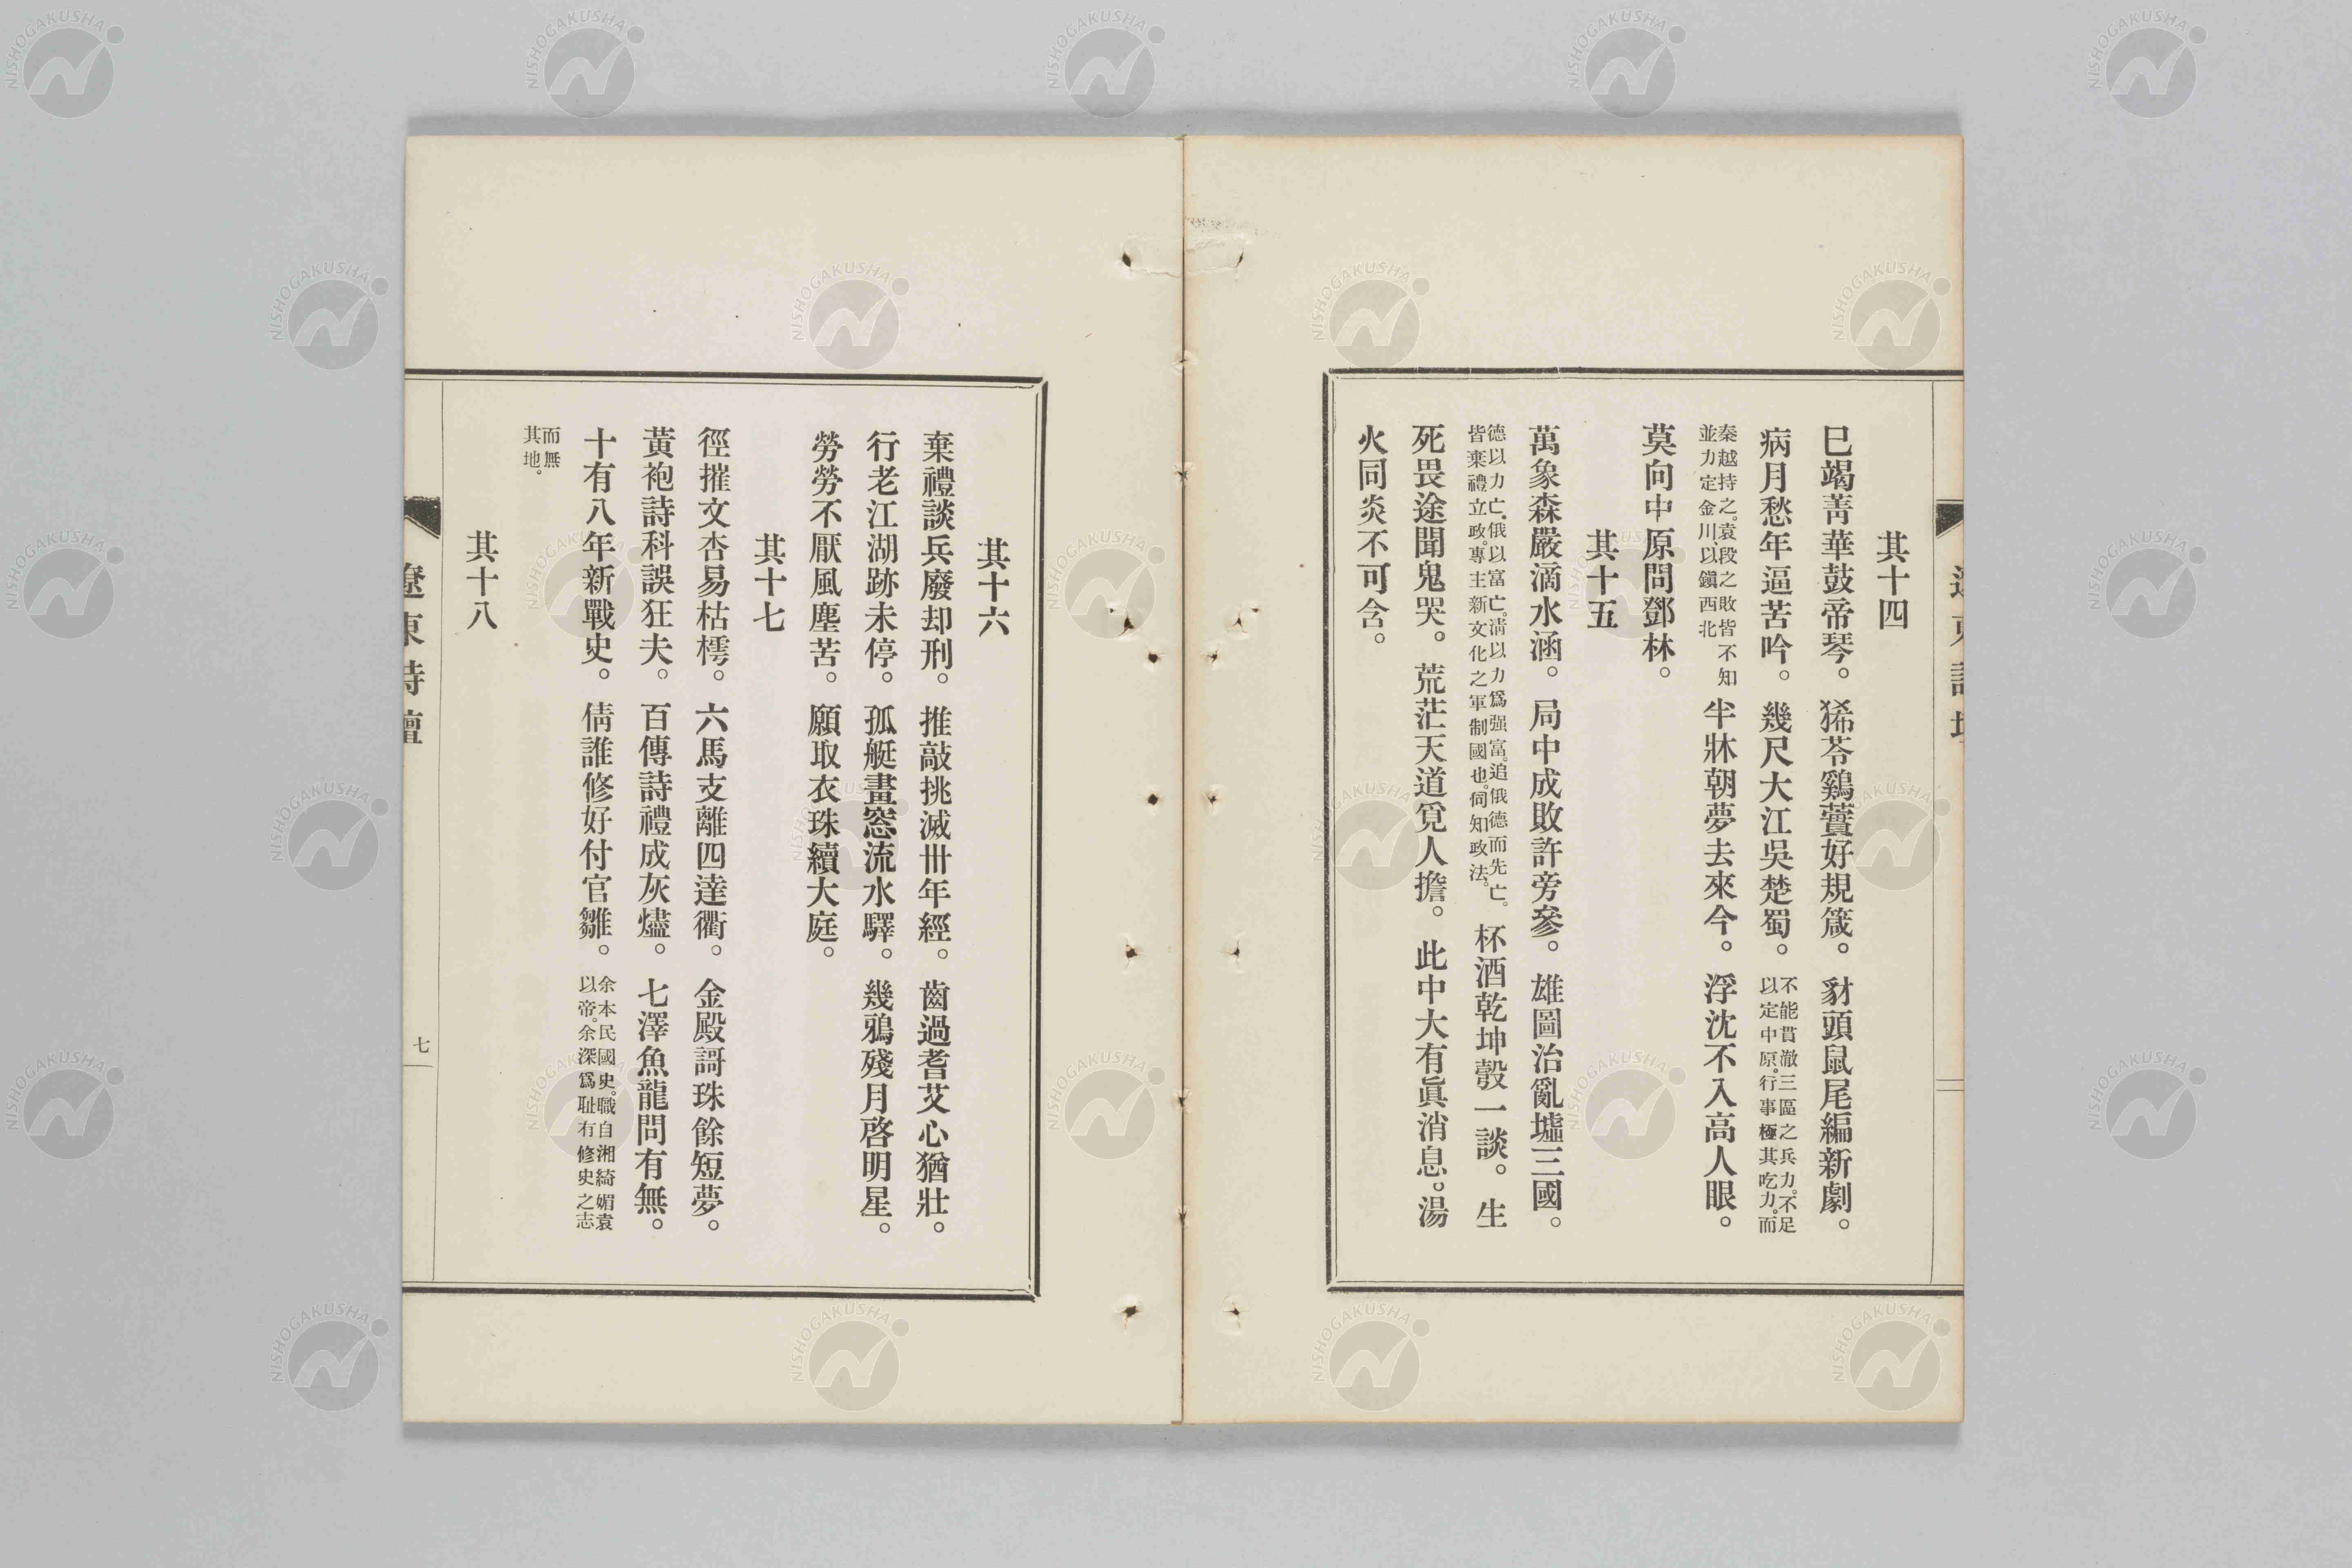 其十四
巳竭菁華鼓帝琴。豨苓鷄蕢好規箴。豺頭鼠尾編新劇。
病月愁年逼苦吟。幾尺大江吳楚蜀。不能貫澈三區之兵力。不足以定中原。行事極其吃力。而
秦越持之。袁段之敗皆不知並力定金川、以鎭西北半牀朝夢去來今。浮沈不入高人眼。
莫向中原問鄧林。
其十五
萬象森嚴滴水涵。局中成敗許旁參。雄圖治亂墟三國。
德以力亡。俄以富亡。淸以力爲强富。追俄德而先亡。皆棄禮立政。專主新文化之軍制國也。伺知政法。杯酒乾坤彀一談。生
死畏途聞鬼哭。荒茫天道覓人擔。此中大有眞消息。湯
火同炎不可含。
遼東詩壇
其十六
棄禮談兵廢却刑。推敲挑滅卅年經。齒過耆艾心猶壯。
行老江湖跡未停。孤艇畫窓流水驛。幾鴉殘月啓明星。
勞勞不厭風塵苦。願取衣珠續大庭。
其十七
徑摧文杏易枯樗。六馬支離四達衢。金殿謌珠餘短夢。
黃袍詩科誤狂夫。百傳詩禮成灰燼。七澤魚龍問有無。
十有八年新戰史。倩誰修好付官雛。余本民國史。職自湘綺媚袁以帝。余深爲耻有修史之志
而無其地。
其十八
遼東詩壇
七
NISHOGAKUSHA